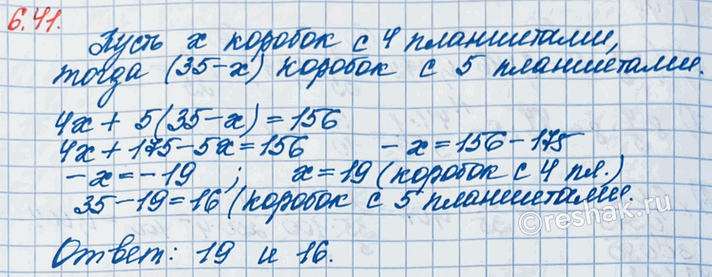 6.41.
Пусть x коробок с 4 планшетами,
тогда (35-x) коробок с 5 планшетами.
4x + 5(35-x) = 156
4x + 175 - 5x = 156 - x = 156 - 175
- x = - 19 ; x = 19 (коробок с 4 пл.)
35 - 19 = 16 (коробок с 5 планшетами.
©reshak.ru
Ответ: 19 и 16.